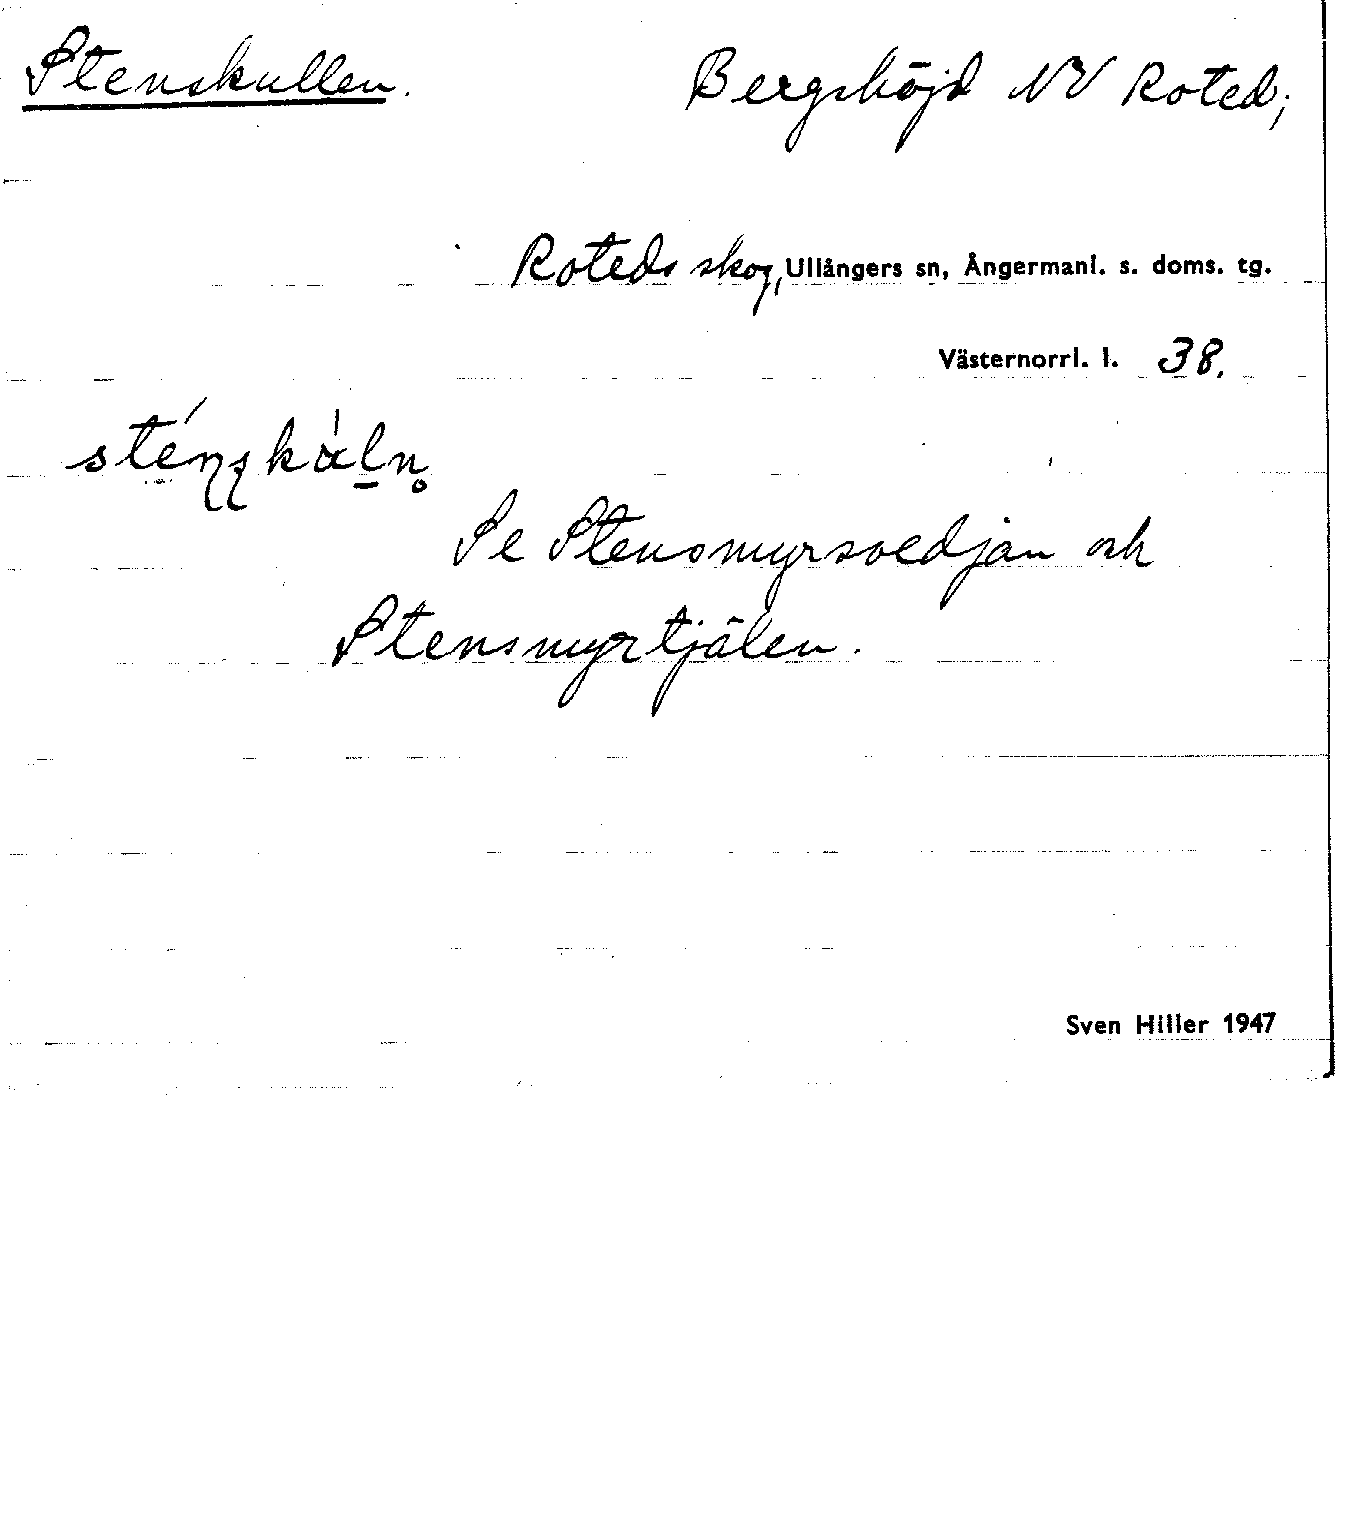 Stenskullen. Bergshöjd NV Roted;
Roteds skog, Ullångers sn, Ångermanl. s. doms. tg.
Västernorrl. l. 38.
Se Stensmyrsvedjan och
Stensmyrtjälen.
Sven Hiller 1947